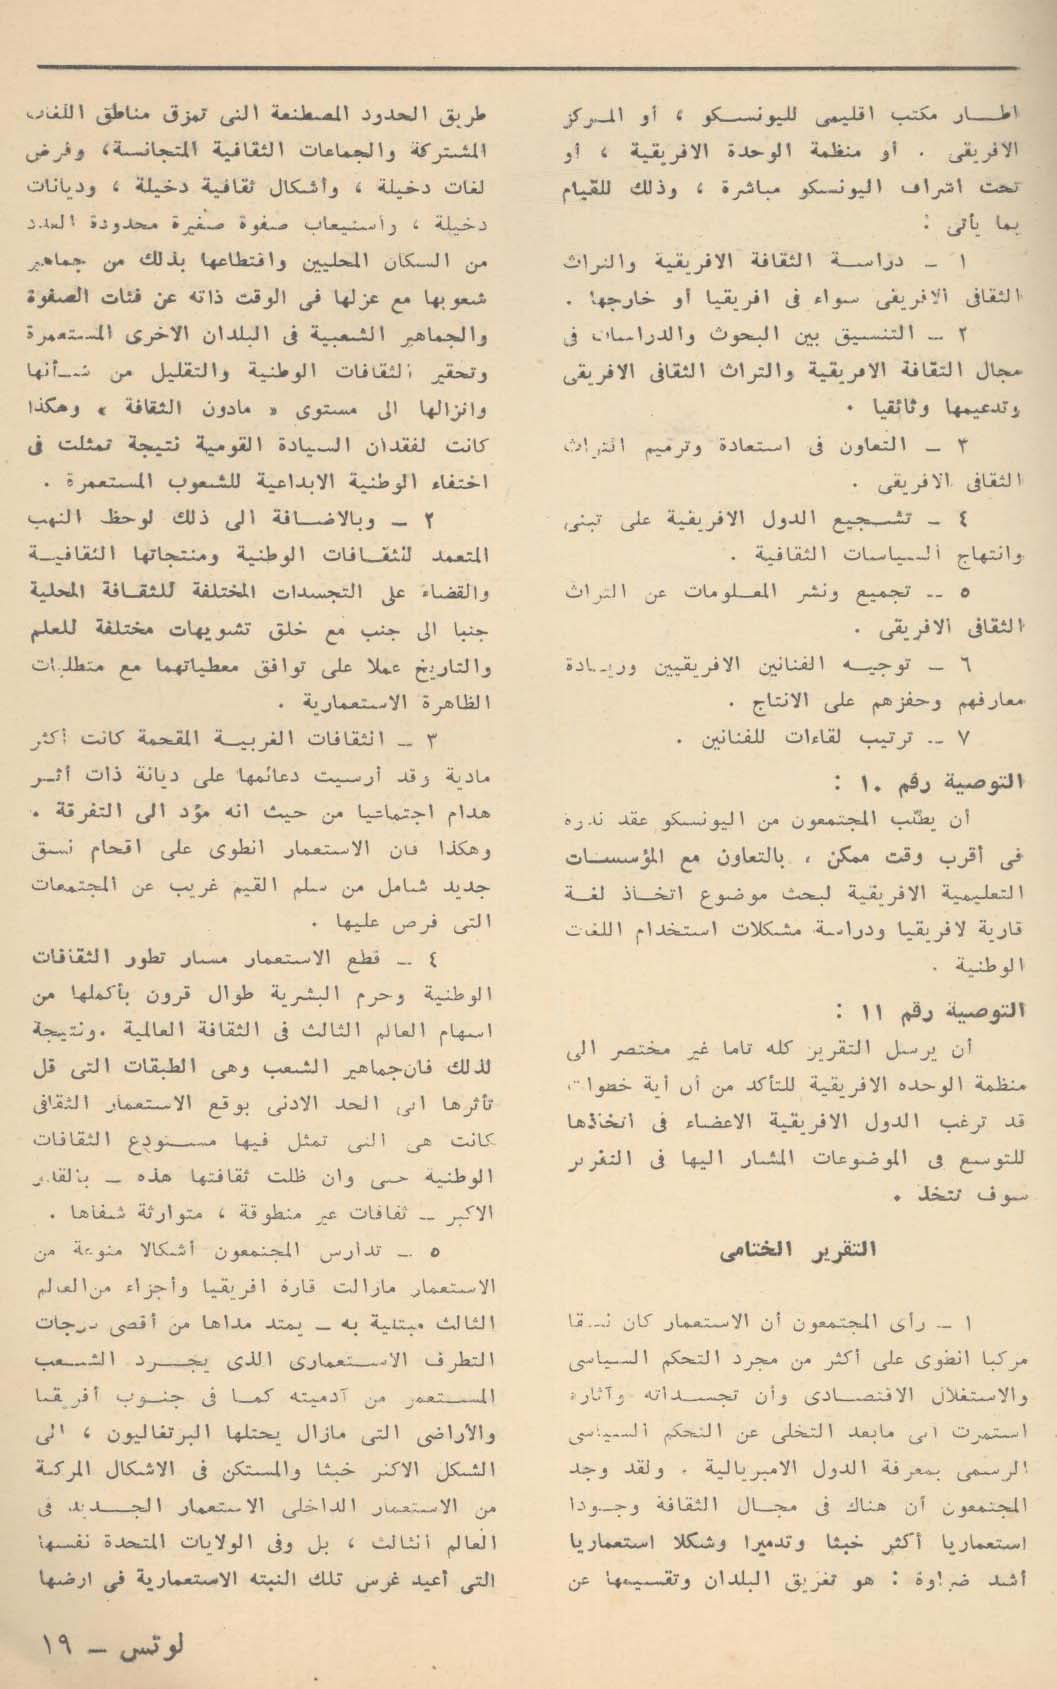 اطار مكتب اقليمى لليونسكو ، أو المركز
الافريقى . أو منظمة الوحدة الافريقية ، أو
تحت اشراف اليونسكو مباشرة ، وذلك للقيام
بما يأتى :
١ – دراسة الثقافة الافريقية والتراث
الثقافى الافريقى سواء فى افريقيا أو خارجها .
٢ – التنسيق بين البحوث والدراسات فى
مجال الثقافة الافريقية والتراث الثقافى الافريقى
وتدعيمها وثائقيا .
٣ – التعاون فى استعادة وترميم التراث
الثقافى الافريقى .
٤ – تشجيع الدول الافريقية على تبنى
وانتهاج السياسات الثقافية .
٥ – تجميع ونشر المعلومات عن التراث
الثقافى الافريقى .
٦ – توجيه الفنانين الافريقيين وزيادة
معارفهم وحفزهم على الانتاج .
٧ – ترتيب لقاءات للفنانين .
التوصية رقم ١٠ :
أن يطلب المجتمعون من اليونسكو عقد ندوة
فى أقرب وقت ممكن ، بالتعاون مع المؤسسات
التعليمية الافريقية لبحث موضوع اتخاذ لغة
قارية لافريقيا ودراسة مشكلات استخدام اللغات
الوطنية .
التوصية رقم ١١ :
أن يرسل التقرير كله تاما غير مختصر الى
منظمة الوحده الافريقية للتأكد من أن أية خطوات
قد ترغب الدول الافريقية الاعضاء فى اتخاذها
للتوسع فى الموضوعات المشار اليها فى التقرير
سوف تتخذ .
التقرير الختامى
١ – رأى المجتمعون أن الاستعمار كان نسقا
مركبا انطوى على أكثر من مجرد التحكم السياسى
والاستغلال الاقتصادى وأن تجسداته وآثاره
استمرت الى مابعد التخلى عن التحكم السياسى
الرسمى بمعرفة الدول الامبريالية . ولقد وجد
المجتمعون أن هناك فى مجال الثقافة وجودا
استعماريا أكثر خبثا وتدميرا وشكلا استعماريا
أشد ضراوة : هو تفريق البلدان وتقسيمها عن
طريق الحدود المصطنعة التى تمزق مناطق اللغات
المشتركة والجماعات الثقافية المتجانسة، وفرض
لغات دخيلة ، وأشكال ثقافية دخيلة ، وديانات
دخيلة ، واستيعاب صفوة صغيرة محدودة العدد
من السكان المحليين واقتطاعها بذلك من جماهير
شعوبها مع عزلها فى الوقت ذاته عن فئات الصفوة
والجماهير الشعبية فى البلدان الاخرى المستعمرة
وتحقير الثقافات الوطنية والتقليل من شأنها
وانزالها الى مستوى « مادون الثقافة » وهكذا
كانت لفقدان السيادة القومية نتيجة تمثلت فى
اختفاء الوطنية الابداعية للشعوب المستعمرة .
٢ – وبالاضافة الى ذلك لوحظ النهب
المتعمد للثقافات الوطنية ومنتجاتها الثقافية
والقضاء على التجسدات المختلفة للثقافة المحلية
جنبا الى جنب مع خلق تشويهات مختلفة للعلم
والتاريخ عملا على توافق معطياتهما مع متطلبات
الظاهرة الاستعمارية .
٣ – الثقافات الغربية المقحمة كانت أكثر
مادية وقد أرسيت دعائمها على ديانة ذات أثر
هدام اجتماعيا من حيث انه مؤد الى التفرقة .
وهكذا فان الاستعمار انطوى على اقحام نسق
جديد شامل من سلم القيم غريب عن المجتمعات
التى فرض عليها .
٤ – قطع الاستعمار مسار تطور الثقافات
الوطنية وحرم البشرية طوال قرون بأكملها من
اسهام العالم الثالث فى الثقافة العالمية .ونتيجة
لذلك فان جماهير الشعب وهى الطبقات التى قل
تأثرها الى الحد الادنى بوقع الاستعمار الثقافى
كانت هى التى تمثل فيها مستودع الثقافات
الوطنية حتى وان ظلت ثقافتها هذه – بالقدر
الاكبر – ثقافات غير منطوقة ، متوارثة شفاها .
٥ – تدارس المجتمعون أشكالا منوعة من
الاستعمار مازالت قارة افريقيا وأجزاء من العالم
الثالث مبتلية به – يمتد مداها من أقصى درجات
التطرف الاستعمارى الذى يجرد الشعب
المستعمر من آدميته كما فى جنوب أفريقيا
والأراضى التى مازال يحتلها البرتغاليون ، الى
الشكل الاكثر خبثا والمستكن فى الاشكال المركبة
من الاستعمار الداخلى الاستعمار الجديد فى
العالم الثالث ، بل وفى الولايات المتحدة نفسها
التى أعيد غرس تلك النبته الاستعمارية فى ارضها
لوتس – ١٩